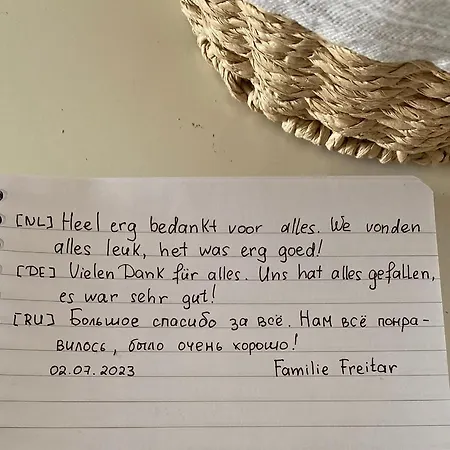 [NL] Heel erg bedankt voor alles. We vonden
alles leuk, het was erg goed!
[DE] Vielen Dank für alles. Uns hat alles gefallen,
es war sehr gut!
[RU] Большое спасибо за всё. Нам всё понра-
вилось, было очень хорошо!
02.07.2023 Familie Freitar